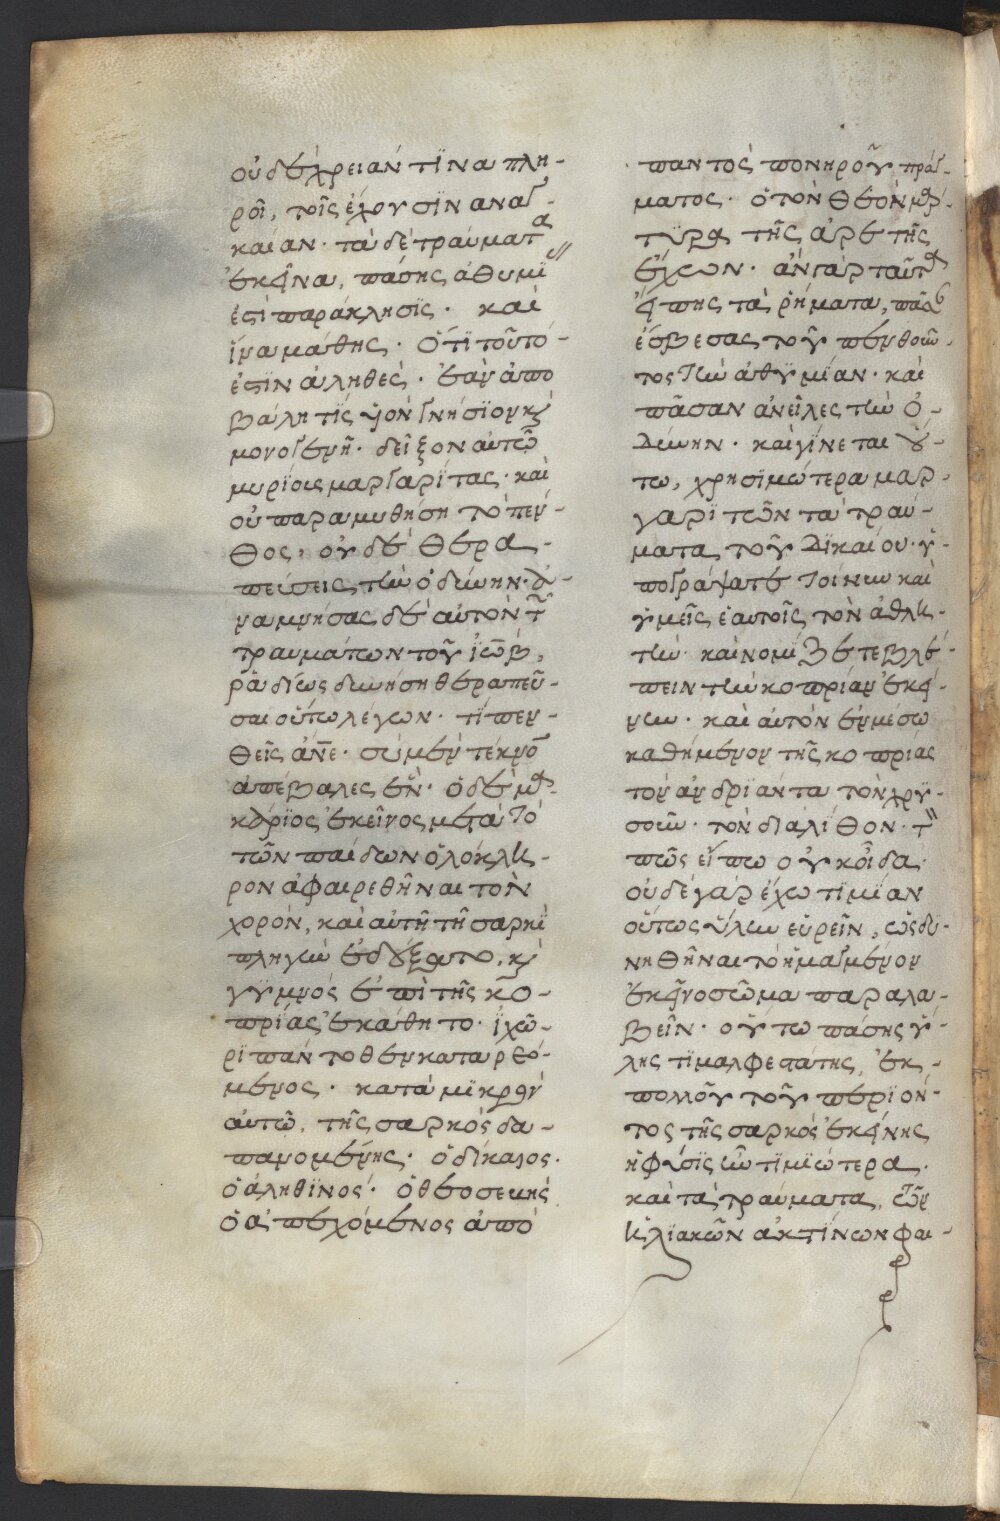 οὐδὲ χρείαν τϊνα πλη-
ροῖ, τοῖς ἔχουσϊν αναγ-
καίαν· τὰ δὲ τραύματα
ἐκεῖνα, πάσης ἀθυμϊ
ἐστὶ παράκλησϊς· καὶ
ἵνα μάθης· ὅτϊ τοῦτό-
ἐστϊν ἀληθὲς· ἐὰν ἀπο
βάλη τϊς ὑϊὸν γνήσϊον κ
μονογενῆ· δεῖξον αὐτῶ
μυρίους μαργαρίτας· καὶ
οὐ παραμυθήση τὸ πέν-
θος, οὐδὲ θερα-
πεύσεις τὴν ὀδύνην· ἀ-
ναμνήσας δὲ αὐτὸν τῶν
τραυμάτων τοῦ ϊὼβ,
ραδίως δυνήση θεραπεῦ-
σαι οὕτω λέγων· τί πεν-
θεῖς ἄνε· σὺ μὲν τέκνον
ἀπέβαλες ἕν· ὁ δὲ μα-
κάριος ἐκεῖνος μετὰ τὸ
τῶν παίδων ὁλόκλη-
ρον ἀφαιρεθῆναι τὸν
χορόν, καὶ αὐτῆ τῆ σαρκὶ
πληγὴν ἐδέξατο, κ
γϋμνός ἐπὶ τῆς κο-
πρίας ἐκάθητο· ϊχῶ-
ρϊ πάντοθεν καταρεό-
μενος· κατὰ μϊκρὸν
αὐτῶ, τῆς σαρκὸς δα-
πανομένης· ὁ δίκαιος·
ὁ ἀληθϊνός· ὁ θεοσεβὴς
ὁ ἀπεχόμενος ἀπὸ
παντὸς πονηροῦ πράγ-
ματος· ὁ τὸν θεὸν μάρ-
τϋρα τῆς ἀρετῆς
ἔχων· ἂν γὰρ ταῦτα
εἴπης τὰ ρήματα, πᾶσαν
ἔσβεσας τοῦ πενθοῦν-
τος τὴν ἀθϋμίαν· καὶ
πᾶσαν ἀνεῖλες τὴν ὀ-
δύνην· καὶ γίνεται οὕ-
τω, χρησϊμώτερα μαρ-
γαρϊτῶν τὰ τραύ-
ματα τοῦ δϊκαίου· ὑ-
πογράψατε τοίνυν καὶ
ὑμεῖς ἑαυτοῖς τὸν ἀθλη-
τὴν· καὶ νομίζετε βλέ-
πειν τὴν κοπρίαν ἐκεί-
νην· καὶ αὐτὸν ἐν μέσω
καθήμενον τῆς κοπρίας
τὸν ἀνδρϊάντα τὸν χρϋ-
σοῦν· τὸν διάλιθον· τὸν
πῶς εἴπω οὐκ οἶδα·
οὐδὲ γὰρ ἔχω τϊμίαν
οὕτως ὕλην εὑρεῖν, ὡς δυ-
νηθῆναι τὸ ἡμαγμένον
ἐκεῖνο σῶμα παραλα-
βεῖν· οὕτω πάσης ὕ-
λης τϊμαλφεστάτης, ἐκ
πολλοῦ τοῦ περϊόν-
τος τῆς σαρκὸς ἐκείνης
ἡ φύσϊς ἦν τϊμϊωτέρα·
καὶ τὰ τραύματα, τῶν
ἡλϊακῶν ἀκτίνων φαι-